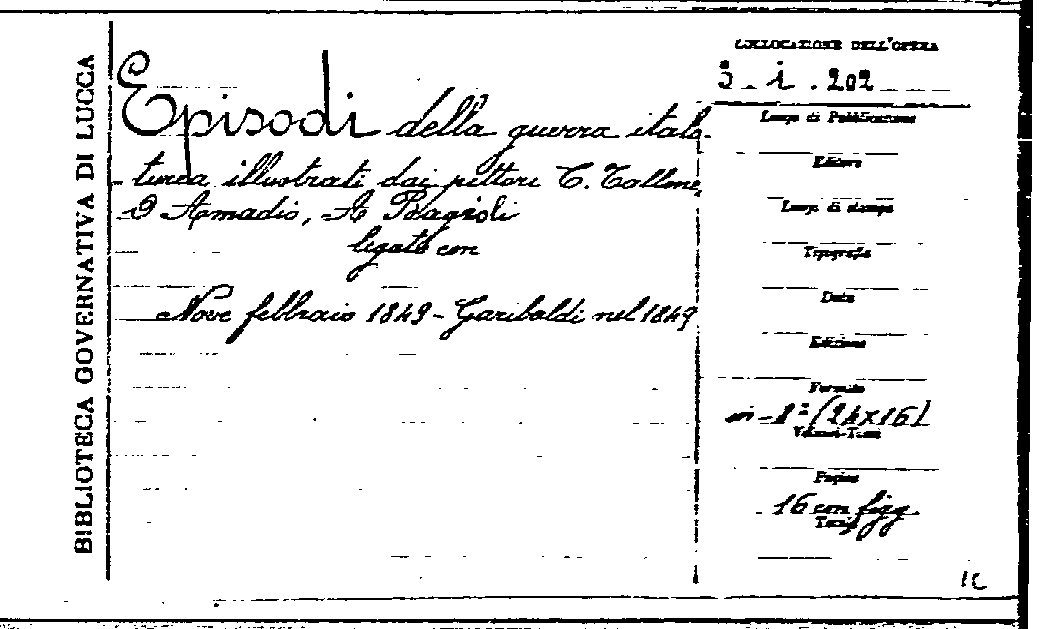 BIBLIOTECA GOVERNATIVA DI LUCCA
Episodi della guerra italo-
turca illustrati dai pittori C.
D Amadio, A Bagnoli
legato con
Nove febbraio 1849 - Garibaldi nel 1849
COLLOCAZIONE DELL'OPERA
3 - i . 202
Luogo di Pubblicazione
Editore
Luogo di stampa
Tipografia
Data
Edizione
Formato
in-8º (24x16)
Volumi-Tomi
Pagine
16 con figg.
Tavole